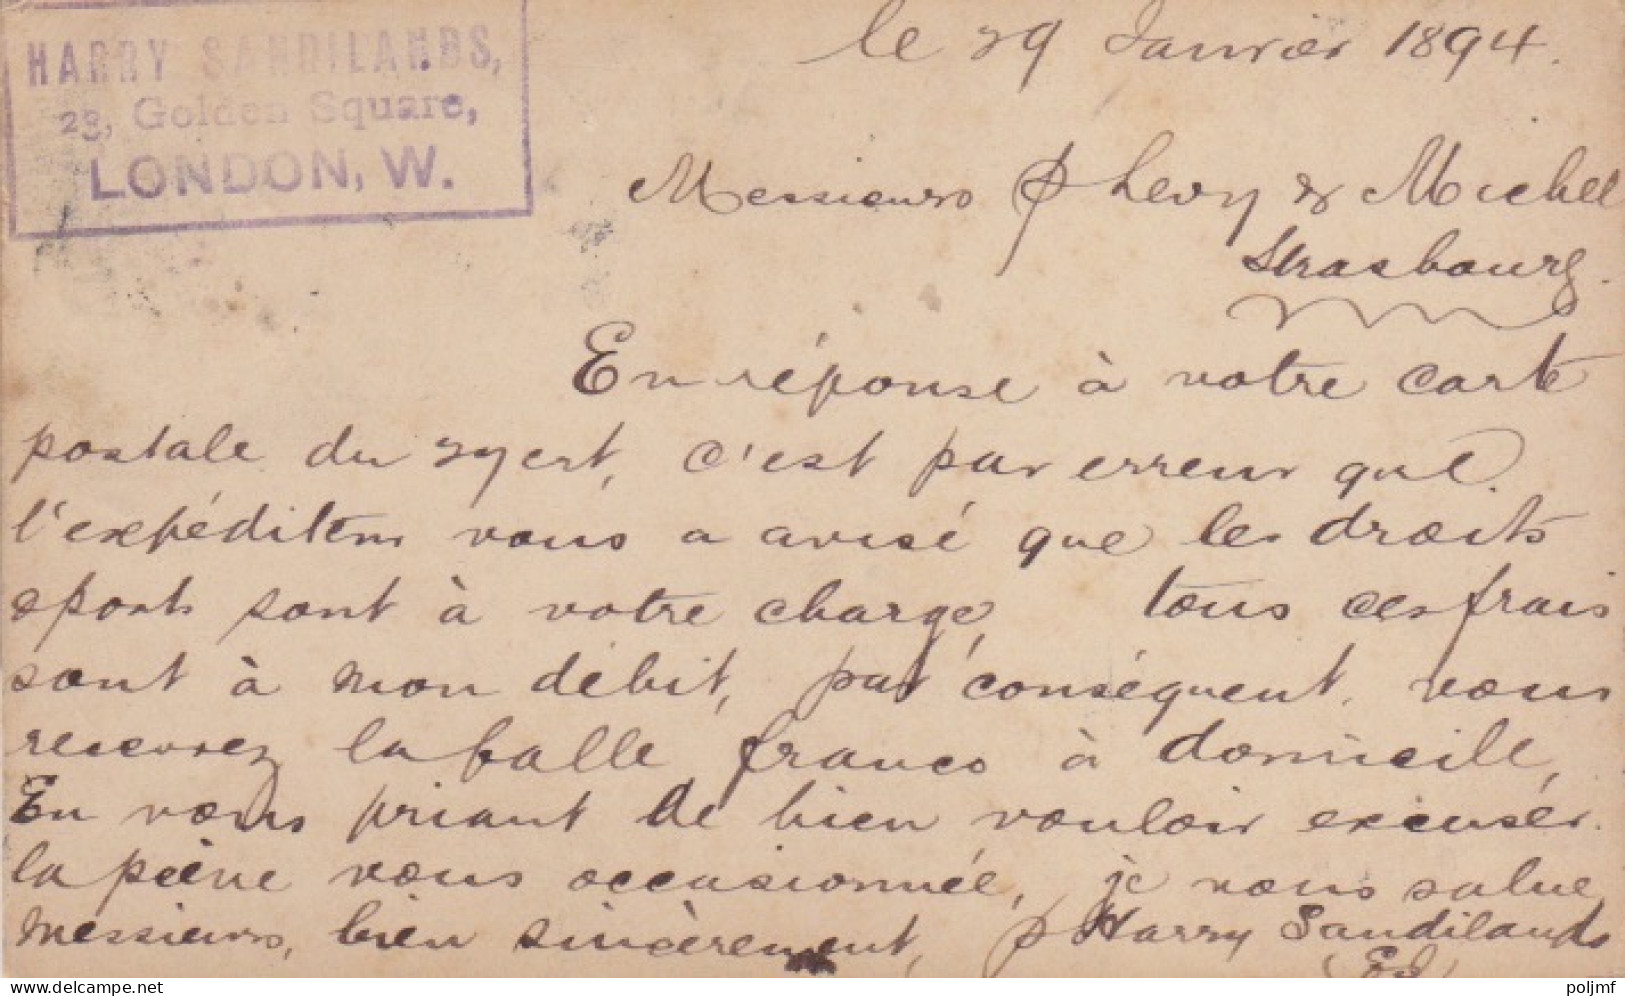 HARRY SANDILANDS,
28, Golden Square,
LONDON, W.
le 29 Janvier 1894.
Messieurs Levy & Michel
Strasbourg.
En réponse à votre carte
postale du 27 crt, c'est par erreur que
l'expéditeur vous a avisé que les droits
& ports sont à votre charge, tous ces frais
sont à mon débit, par conséquent vous
recevrez la balle franco à domicile,
En vous priant de bien vouloir excuser
la peine vous occasionnée, je vous salue,
messieurs, bien sincèrement, p Harry Sandilands
poljmf